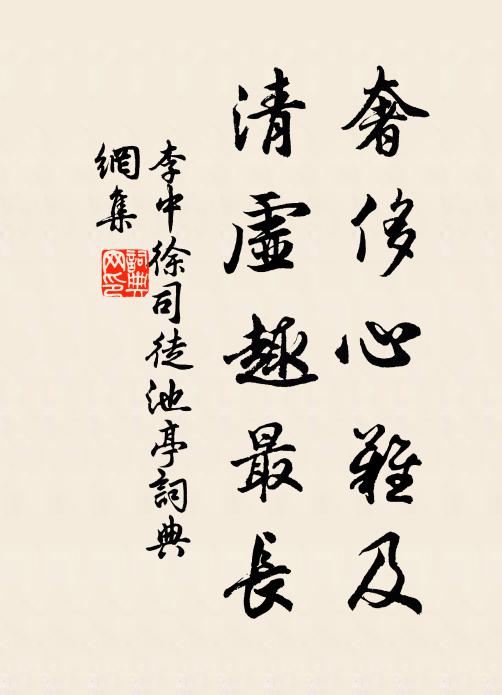 奢侈心難及
清虛趣最長
李中徐司徒池亭詞典
網集
詞典
网印